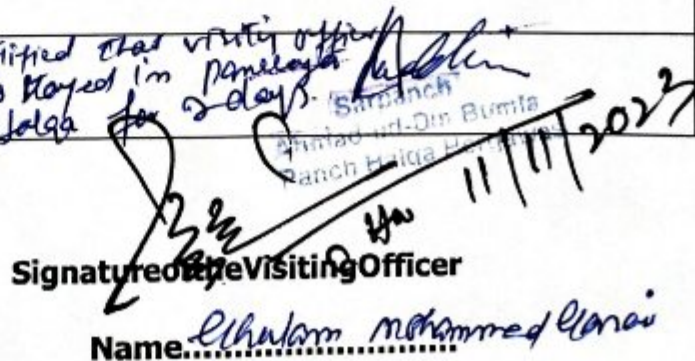 tified that visiting officer
stayed in Panchayat
Halqa for 2 days.
Sarpanch
Ahmad-ud-Din Bumla
Panch Halqa
11/11/2023
SignatureoftheVisitingOfficer
Name..............................Ghulam Mohammed Ganai